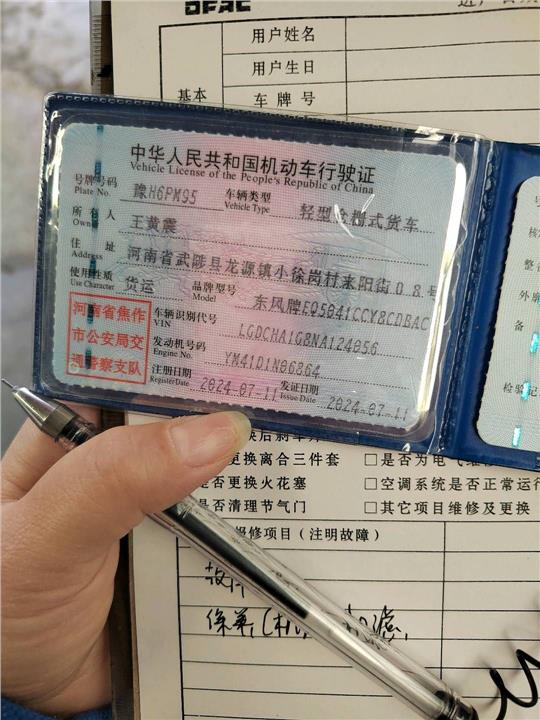 DFAC
用户姓名
用户生日
基本
车牌号
中华人民共和国机动车行驶证
Vehicle License of the People's Republic of China
号牌号码 豫H6PM95 车辆类型 轻型仓栅式货车
Plate No. Vehicle Type
所有人 王黄震
Owner
住址 河南省武陟县龙源镇小徐岗村耒阳街08号
Address
使用性质 货运 品牌型号 东风牌EQ5041CCY8CDBAC
Use Character Model
河南省焦作
市公安局交
通警察支队
车辆识别代号 LGDCHA1G8NA124056
VIN
发动机号码 YM41D1N06864
Engine No.
注册日期 2024-07-11 发证日期 2024-07-11
Register Date Issue Date
备
检验记
更换离合三件套 □是否为电气维
否更换火花塞 □空调系统是否正常运行
否清理节气门 □其它项目维修及更换
报修项目（注明故障）